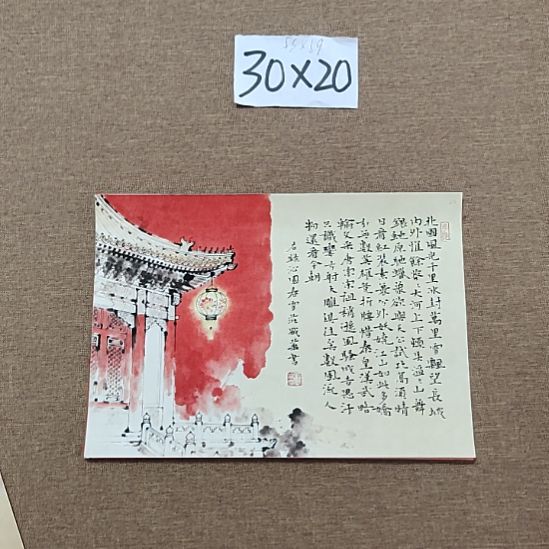 30×20
北國風光千里冰封萬里雪飄望長城
內外惟餘莽莽大河上下頓失滔滔山舞
銀蛇原馳蠟象欲與天公試比高須晴
日看紅裝素裹分外妖嬈江山如此多嬌
引無數英雄競折腰惜秦皇漢武略
輸文采唐宗宋祖稍遜風騷成吉思汗
只識彎弓射大雕俱往矣數風流人
物還看今朝
右錄沁園春雪